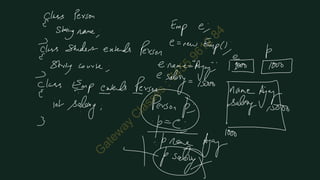 Class Person
String name,
}
Class Student extends Person
String course,
}
Class Emp extends Person
int salary,
}
Emp e,
e = new Emp(),
e name = Ajay
e salary =
e
1000
p
1000
name Ajay
salary
1000
Person p,
p = e
p name
p salary
Gateway